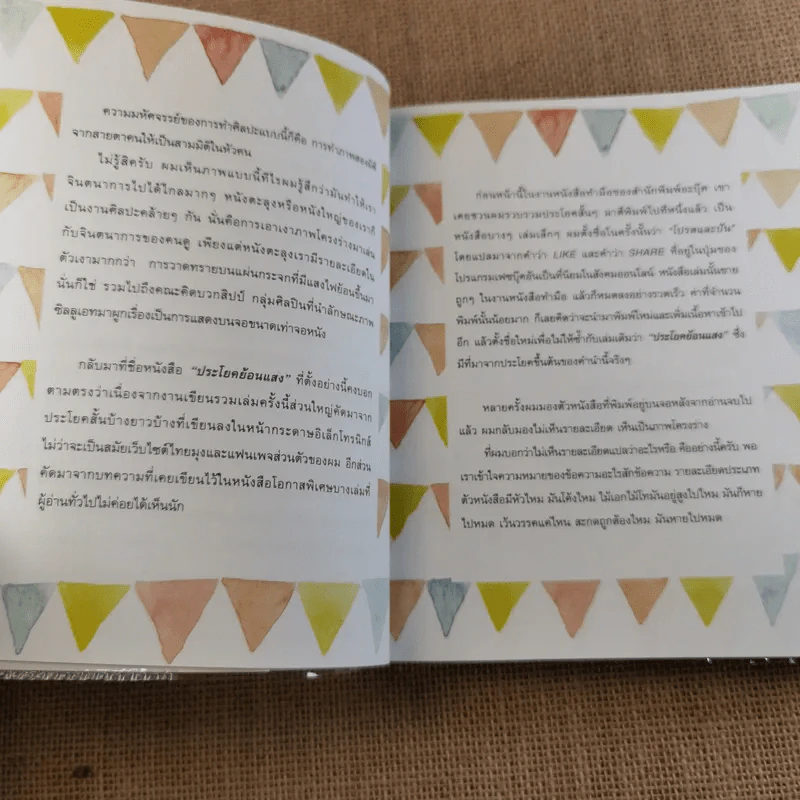 ความมหัศจรรย์ของการทำศิลปะแบบนี้ก็คือ การทำภาพสองมิติ
จากสายตาคนให้เป็นสามมิติในหัวคน
ไม่รู้สิครับ ผมเห็นภาพแบบนี้ทีไรผมรู้สึกว่ามันทำให้เรา
จินตนาการไปได้ไกลมากๆ หนังตะลุงหรือหนังใหญ่ของเราก็
เป็นงานศิลปะคล้ายๆ กัน นั่นคือการเอาเงาภาพโครงร่างมาเล่น
กับจินตนาการของคนดู เพียงแต่หนังตะลุงเรามีรายละเอียดใน
ตัวเงามากกว่า การวาดทรายบนแผ่นกระจกที่มีแสงไฟย้อนขึ้นมา
นั่นก็ใช่ รวมไปถึงคณะคิดบวกสิปป์ กลุ่มศิลปินที่นำลักษณะภาพ
ซิลลูเอทมาผูกเรื่องเป็นการแสดงบนจอขนาดเท่าจอหนัง
กลับมาที่ชื่อหนังสือ “ประโยคย้อนแสง” ที่ตั้งอย่างนี้คงบอก
ตามตรงว่าเนื่องจากงานเขียนรวมเล่มครั้งนี้ส่วนใหญ่คัดมาจาก
ประโยคสั้นบ้างยาวบ้างที่เขียนลงในหน้ากระดาษอิเล็กโทรนิกส์
ไม่ว่าจะเป็นสมัยเว็บไซต์ไทยมุงและแฟนเพจส่วนตัวของผม อีกส่วน
คัดมาจากบทความที่เคยเขียนไว้ในหนังสือโอกาสพิเศษบางเล่มที่
ผู้อ่านทั่วไปไม่ค่อยได้เห็นนัก
ก่อนหน้านี้ในงานหนังสือทำมือของสำนักพิมพ์อะบุ๊ค เขา
เคยชวนผมรวบรวมประโยคสั้นๆ มาตีพิมพ์ไปทีหนึ่งแล้ว เป็น
หนังสือบางๆ เล่มเล็กๆ ผมตั้งชื่อในครั้งนั้นว่า “โปรดและปัน”
โดยแปลมาจากคำว่า LIKE และคำว่า SHARE ที่อยู่ในปุ่มของ
โปรแกรมเฟซบุ๊คอันเป็นที่นิยมในสังคมออนไลน์ หนังสือเล่มนั้นขาย
ถูกๆ ในงานหนังสือทำมือ แล้วก็หมดลงอย่างรวดเร็ว ค่าที่จำนวน
พิมพ์นั้นน้อยมาก ก็เลยคิดว่าจะนำมาพิมพ์ใหม่และเพิ่มเนื้อหาเข้าไป
อีก แล้วตั้งชื่อใหม่เพื่อไม่ให้ซ้ำกับเล่มเดิมว่า “ประโยคย้อนแสง” ซึ่ง
มีที่มาจากประโยคขึ้นต้นของคำนำนี้จริงๆ
หลายครั้งผมมองตัวหนังสือที่พิมพ์อยู่บนจอหลังจากอ่านจบไป
แล้ว ผมกลับมองไม่เห็นรายละเอียด เห็นเป็นภาพโครงร่าง
ที่ผมบอกว่าไม่เห็นรายละเอียดแปลว่าอะไรหรือ คืออย่างนี้ครับ พอ
เราเข้าใจความหมายของข้อความอะไรสักข้อความ รายละเอียดประเภท
ตัวหนังสือมีหัวไหม มันโค้งไหม ไม้เอกไม้โทมันอยู่สูงไปไหม มันก็หาย
ไปหมด เว้นวรรคแค่ไหน สะกดถูกต้องไหม มันหายไปหมด